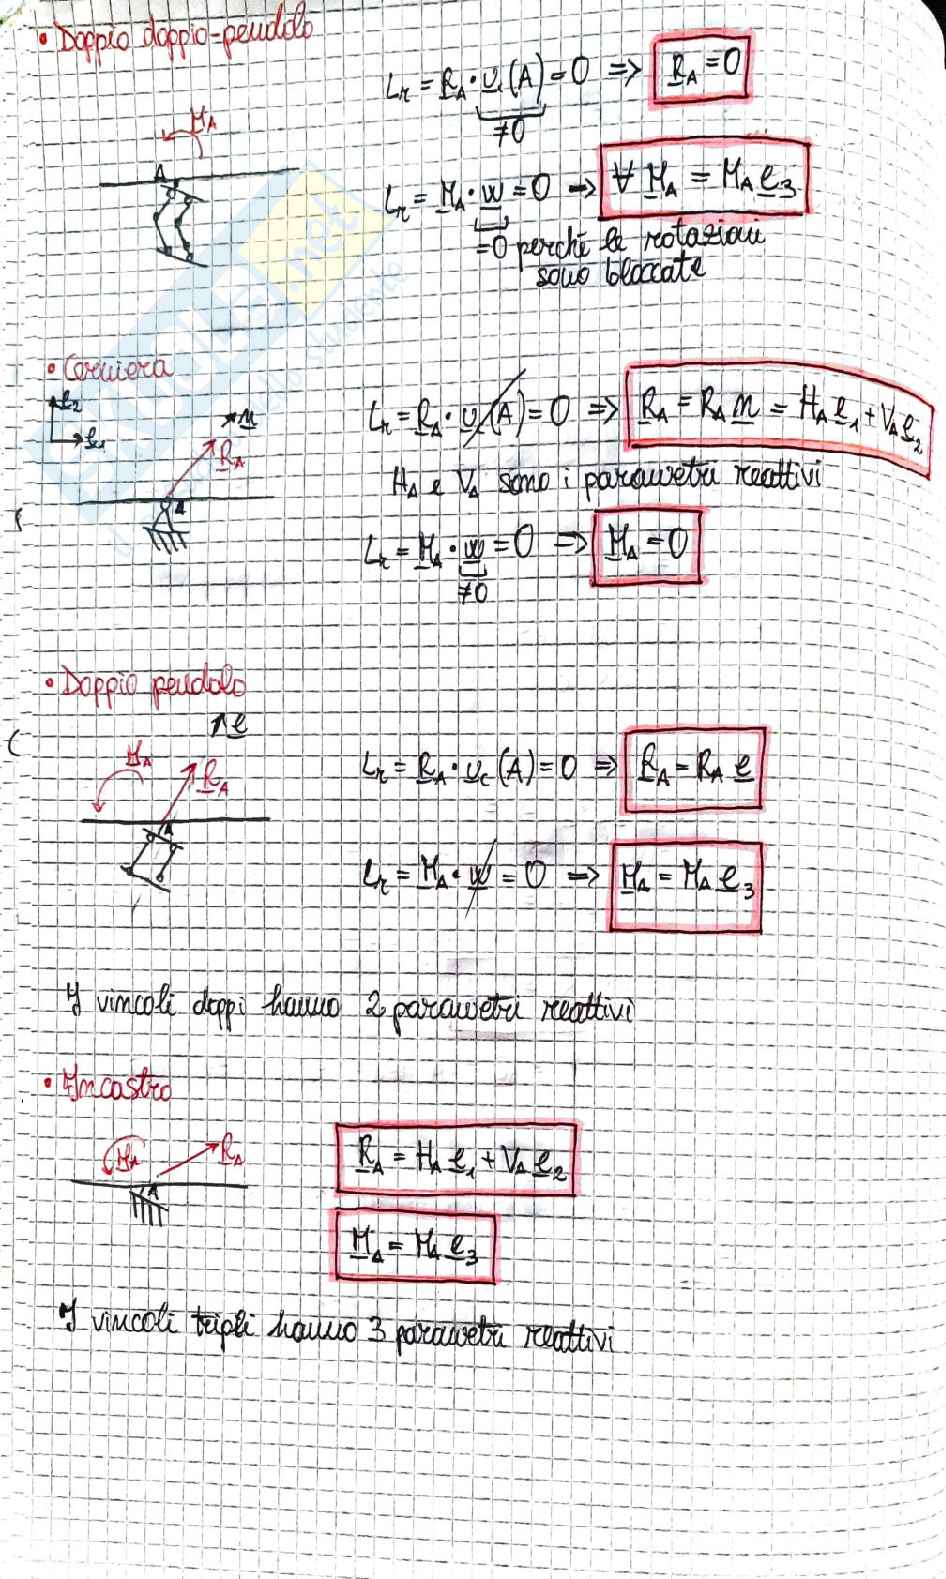 • Doppio doppio-pendolo
Lr = RA · u(A) = 0 => RA = 0
≠0
MA
A
Lr = MA · w = 0 -> ∀ MA = MA e3
=0 perché le rotazioni
sono bloccate
• Cerniera
e2
e1
n
RA
A
Lr = RA · u(A) = 0 => RA = RA n = HA e1 + VA e2
HA e VA sono i parametri reattivi
Lr = MA · w = 0 => MA = 0
≠0
• Doppio pendolo
e
MA
RA
A
Lr = RA · uc(A) = 0 => RA = RA e
Lr = MA · w = 0 -> MA = MA e3
I vincoli doppi hanno 2 parametri reattivi
• Incastro
MA
RA
A
RA = HA e1 + VA e2
MA = MA e3
I vincoli tripli hanno 3 parametri reattivi